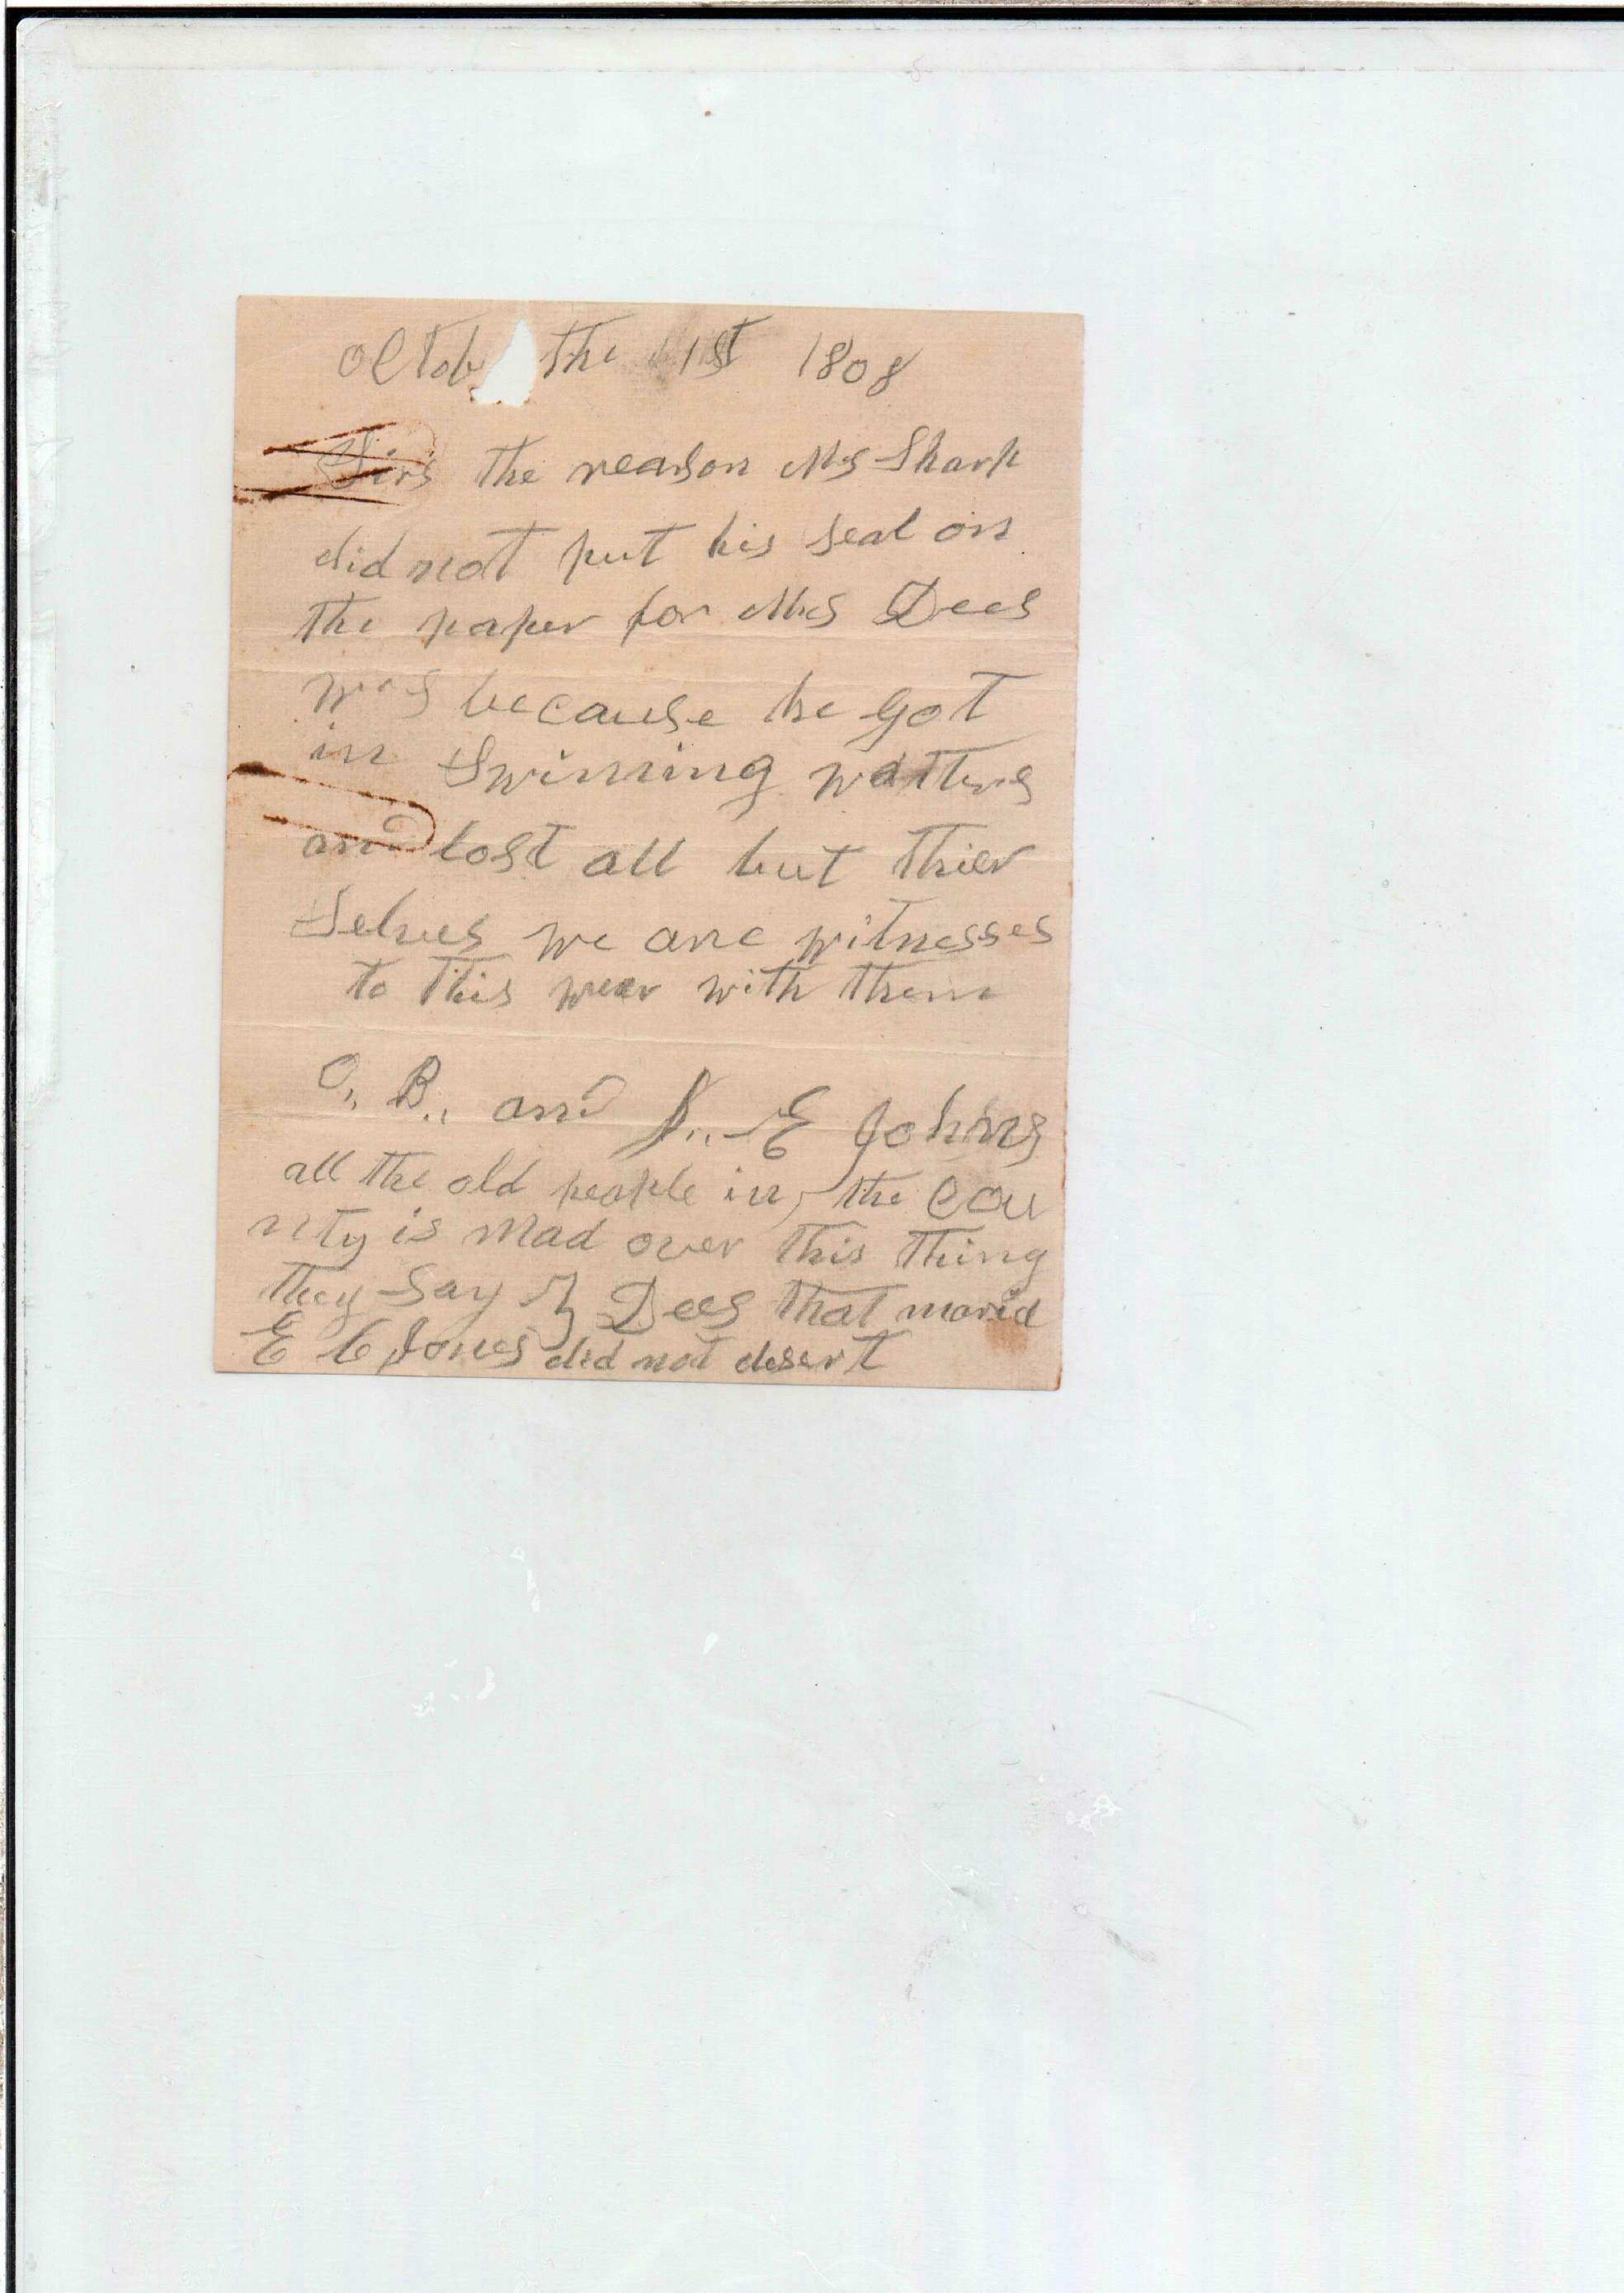 Octob the 1st 1808
Sirs the reason Mrs Sharp
did not put his seal on
the paper for Mrs Dees
was because he got
in Swiming watters
and lost all but thier
Selves we are witnesses
to this wear with them
O., B., and J., E Johns
all the old people in, the Cou
nty is Mad over this thing
they Say J Dees that marid
E C Jones did not desert